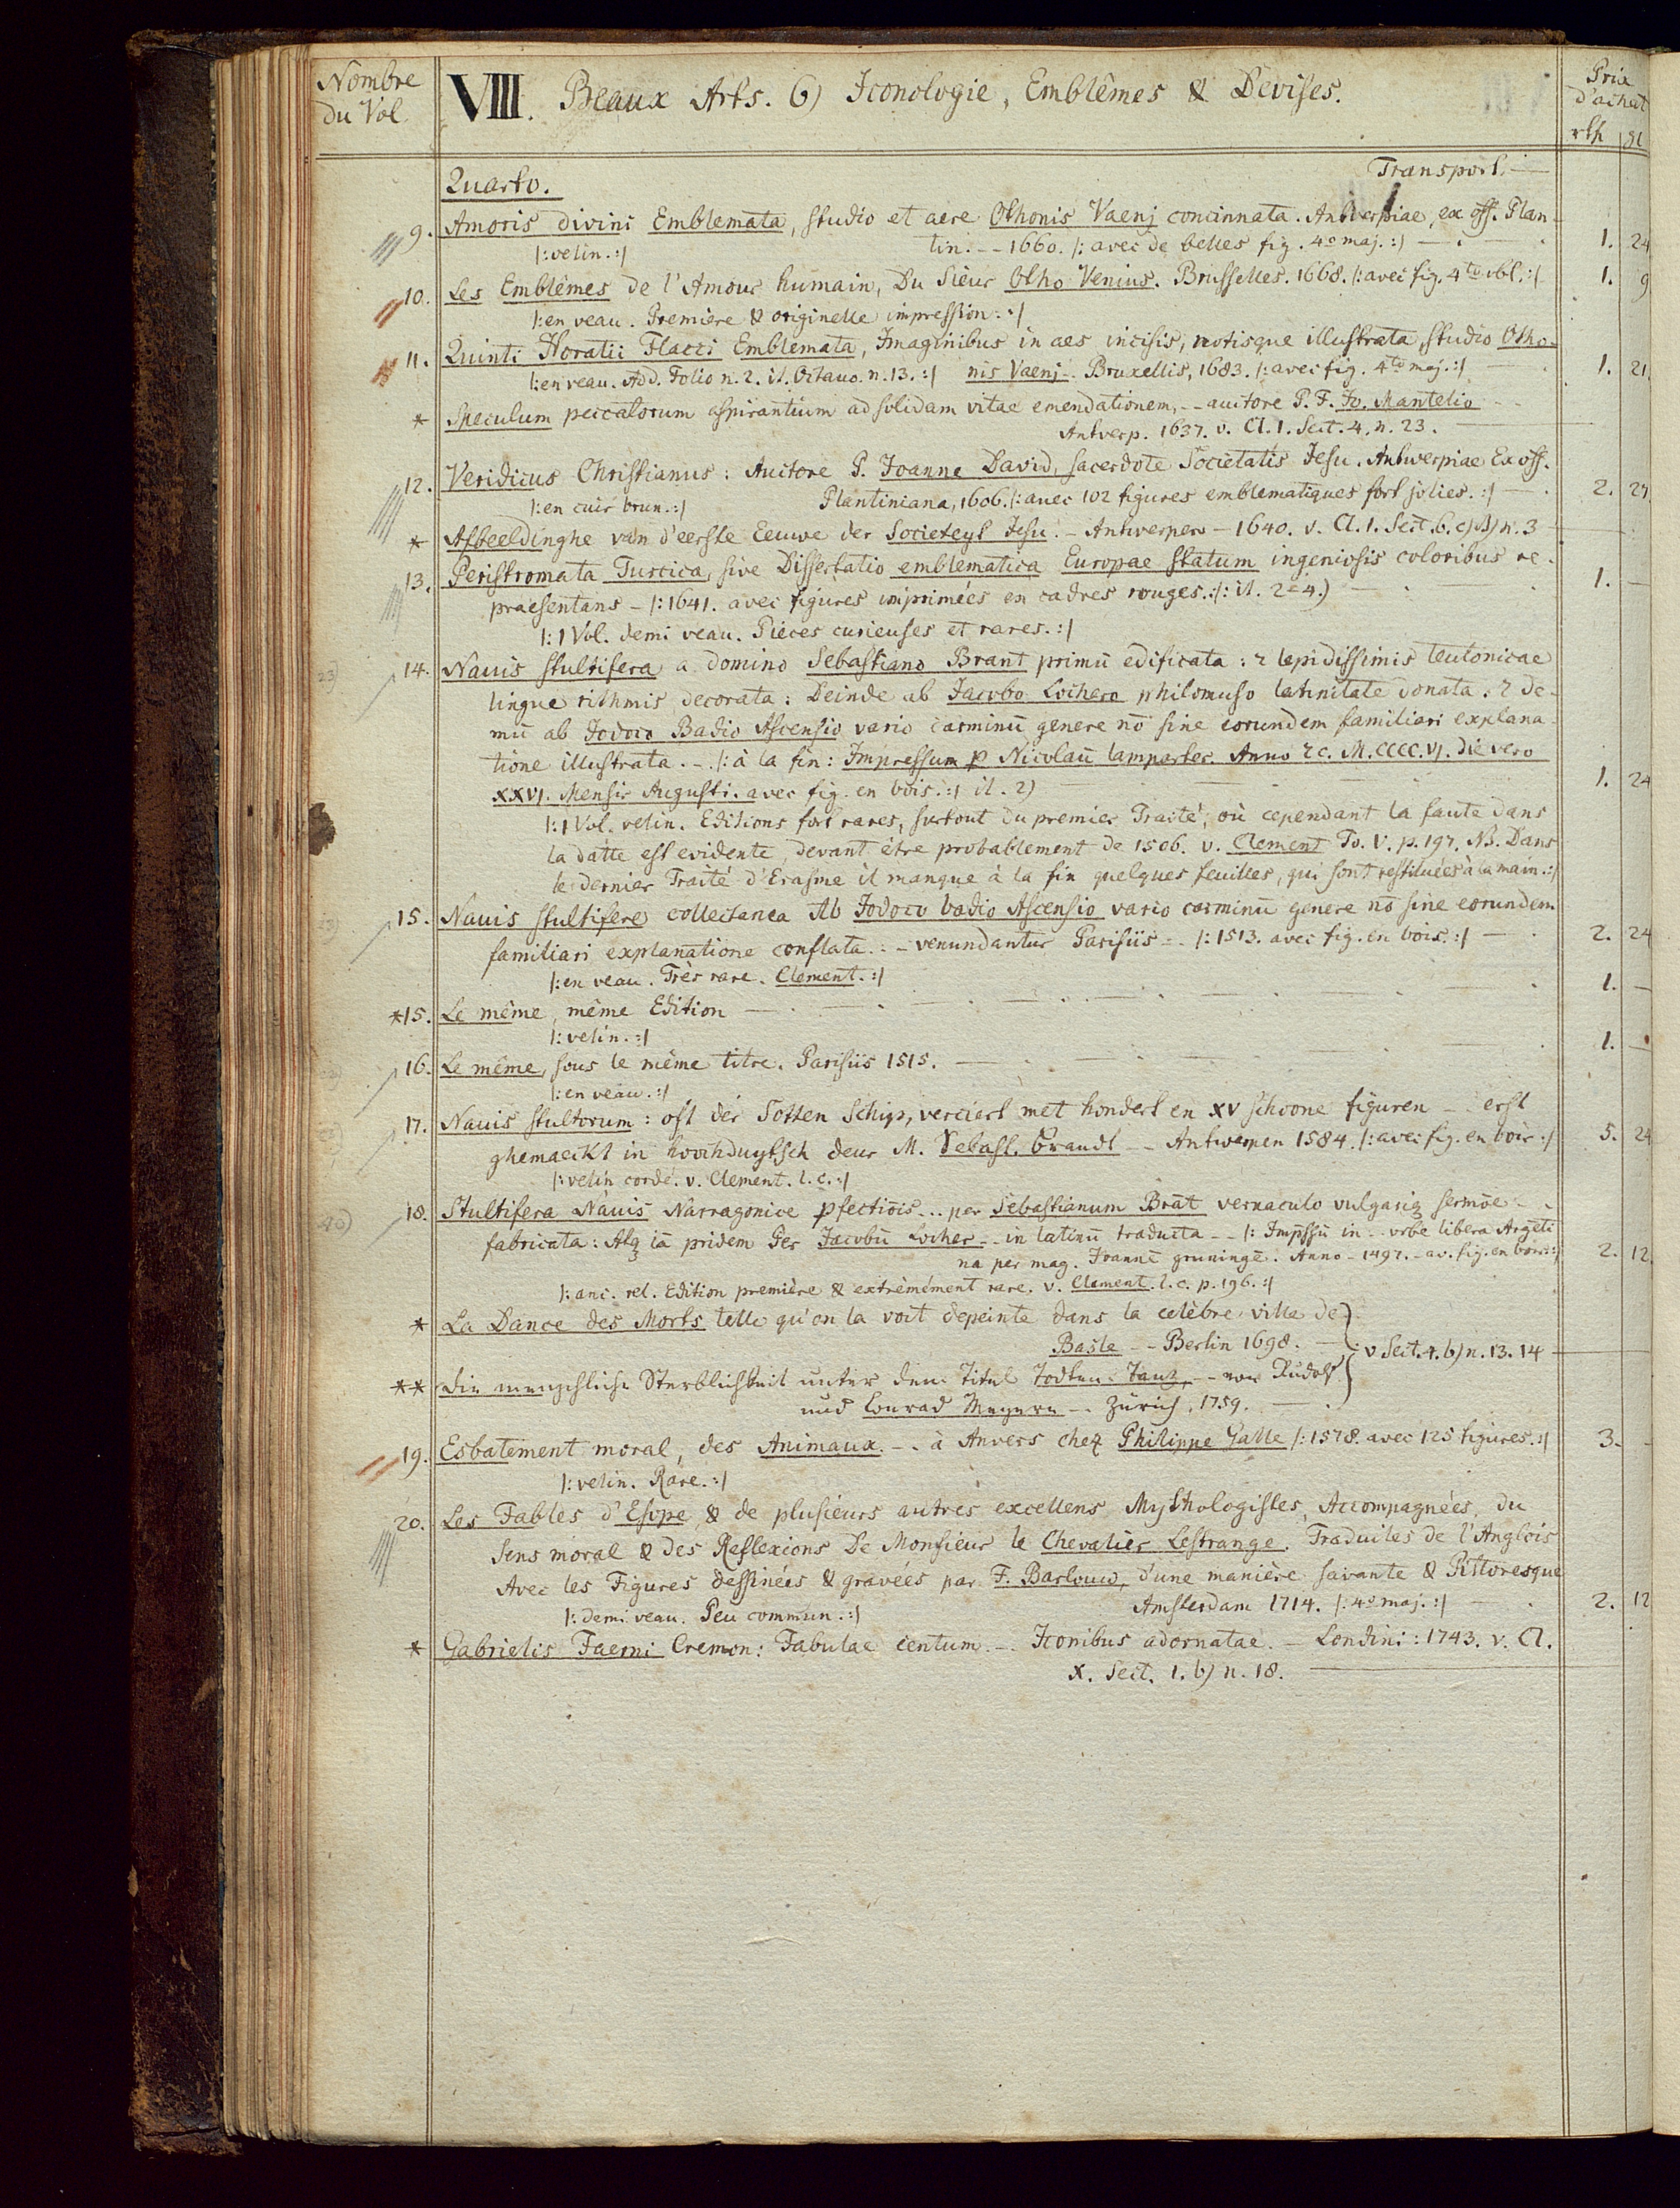 Nombre du Vol.
VIII. Beaux Arts. 6) Iconologie, Emblêmes & Devises.
Prix d'achat
rth gl
Transport. —
Quarto.
9. Amoris divini Emblemata, studio et aere Othonis Vaenj concinnata. Antverpiae, ex off. Plan-
|: velin. :| tin. -- 1660. |: avec de belles fig. 4o maj. :| — 1. 24
10. Les Emblêmes de l'Amour humain, Du Sieur Otho Venius. Brusselles. 1668. |: avec fig. 4to obl. :| 1. 9
|: en veau. Premiere & originelle impression. :|
11. Quinti Horatii Flacci Emblemata, Imaginibus in aes incisis, notisque illustrata, studio Otho-
|: en veau. Add. Folio n. 2. it. Octavo. n. 13. :| nis Vaenj -. Bruxellis, 1683. |: avec fig. 4to maj. :| — 1. 21.
* Speculum peccatorum aspirantium ad solidam vitae emendationem, -- auctore P. F. Jo. Mantelio --
Antverp. 1637. v. Cl. 1. Sect. 4. n. 23. —
12. Veridicus Christianus: Auctore P. Joanne David, sacerdote Societatis Jesu. Antwerpiae Ex off.
|: en cuir brun. :| Plantiniana, 1606. |: avec 102 figures emblematiques fort jolies. :| — 2. 27
* Afbeeldinghe van d'eerste Eeuwe der Societeyt Jesu. - Antwerpen - 1640. v. Cl. 1. Sect. 6. c) n. 3
13. Peristromata Turcica, sive Dissertatio emblematica Europae statum ingeniosis coloribus re-
praesentans - |: 1641. avec figures imprimées en cadres rouges. :|: it. 2=4.) — 1. —
|: 1 Vol. demi veau. Pièces curieuses et rares. :|
14. Navis stultifera a domino Sebastiano Brant primū edificata: & lepidissimis teutonicae
lingue rithmis decorata: Deinde ab Jacobo Lochero philomuso latinitate donata. & de-
mū ab Jodoco Badio Ascensio vario carminū genere nō sine eorundem familiari explana-
tione illustrata. -. |: à la fin: Impressum p Nicolaū lamparter. Anno &c. M.CCCC.VI. die vero
XXVI. Mensis Augusti. avec fig. en bois. :| it. 2) 1. 24
|: 1 Vol. velin. Editions fort rares, surtout du premier Traité, où cependant la faute dans
la datte est evidente, devant être probablement de 1506. v. Clement To. V. p. 197. NB. Dans
le dernier Traité d'Erasme il manque à la fin quelques feuilles, qui sont restituées à la main. :|
15. Navis stultifere collectanea Ab Jodoco badio Ascensio vario carminū genere nō sine eorundem
familiari explanatione conflata. : - venundantur Parisiis -. |: 1513. avec fig. en bois. :| — 2. 24
|: en veau. Très rare. Clement. :|
*15. Le même, même Edition — 1. —
|: velin. :|
16. Le même, sous le même titre. Parisiis 1515. — 1. —
|: en veau. :|
17. Navis stultorum: oft der Sotten Schip, verciert met hondert en XV schoone figuren - erst
ghemaeckt in hoochduytsch deur M. Sebast. Brandt -- Antwerpen 1584. |: avec fig. en bois :| 5. 24
|: velin cordé. v. Clement. l. c. :|
18. Stultifera Navis Narragonice pfectiōis... per Sebastianum Brāt vernaculo vulgariq sermōe -.
fabricata: Atq iā pridem Per Jacobū Locher -- in latinū traducta -- |: Impssū in - vrbe libera Argēti
na per mag. Joannē gruningē. Anno - 1497. - av. fig. en bois. :| 2. 12
|: anc. rel. Edition première & extrèmément rare. v. Clement. l. c. p. 196. :|
* La Dance des Morts telle qu'on la voit depeinte dans la celèbre ville de
Basle -- Berlin 1698. — } v Sect. 4. b) n. 13. 14 —
** Die menschliche Sterblichkeit unter dem Titel Todten-Tanz, -- von Rudolf
und Conrad Meyern -. Zürich, 1759. —
19. Esbatement moral, des Animaux. -. à Anvers chez Philippe Galle |: 1578. avec 125 figures. :| 3. -
|: velin. Rare. :|
20. Les Fables d'Esope, & de plusieurs autres excellens Mythologistes, Accompagnées du
Sens moral & des Reflexions De Monsieur le Chevalier Lestrange. Traduites de l'Anglois
Avec les Figures dessinées & gravées par F. Barlouw, d'une manière savante & Pittoresque
|: demi veau. Peu commun. :| Amsterdam 1714. |: 4o maj. :| — 2. 12
* Gabrielis Faerni Cremon: Fabulae centum -. Iconibus adornatae. - Londini: 1743. v. Cl.
X. Sect. 1. b) n. 18. —